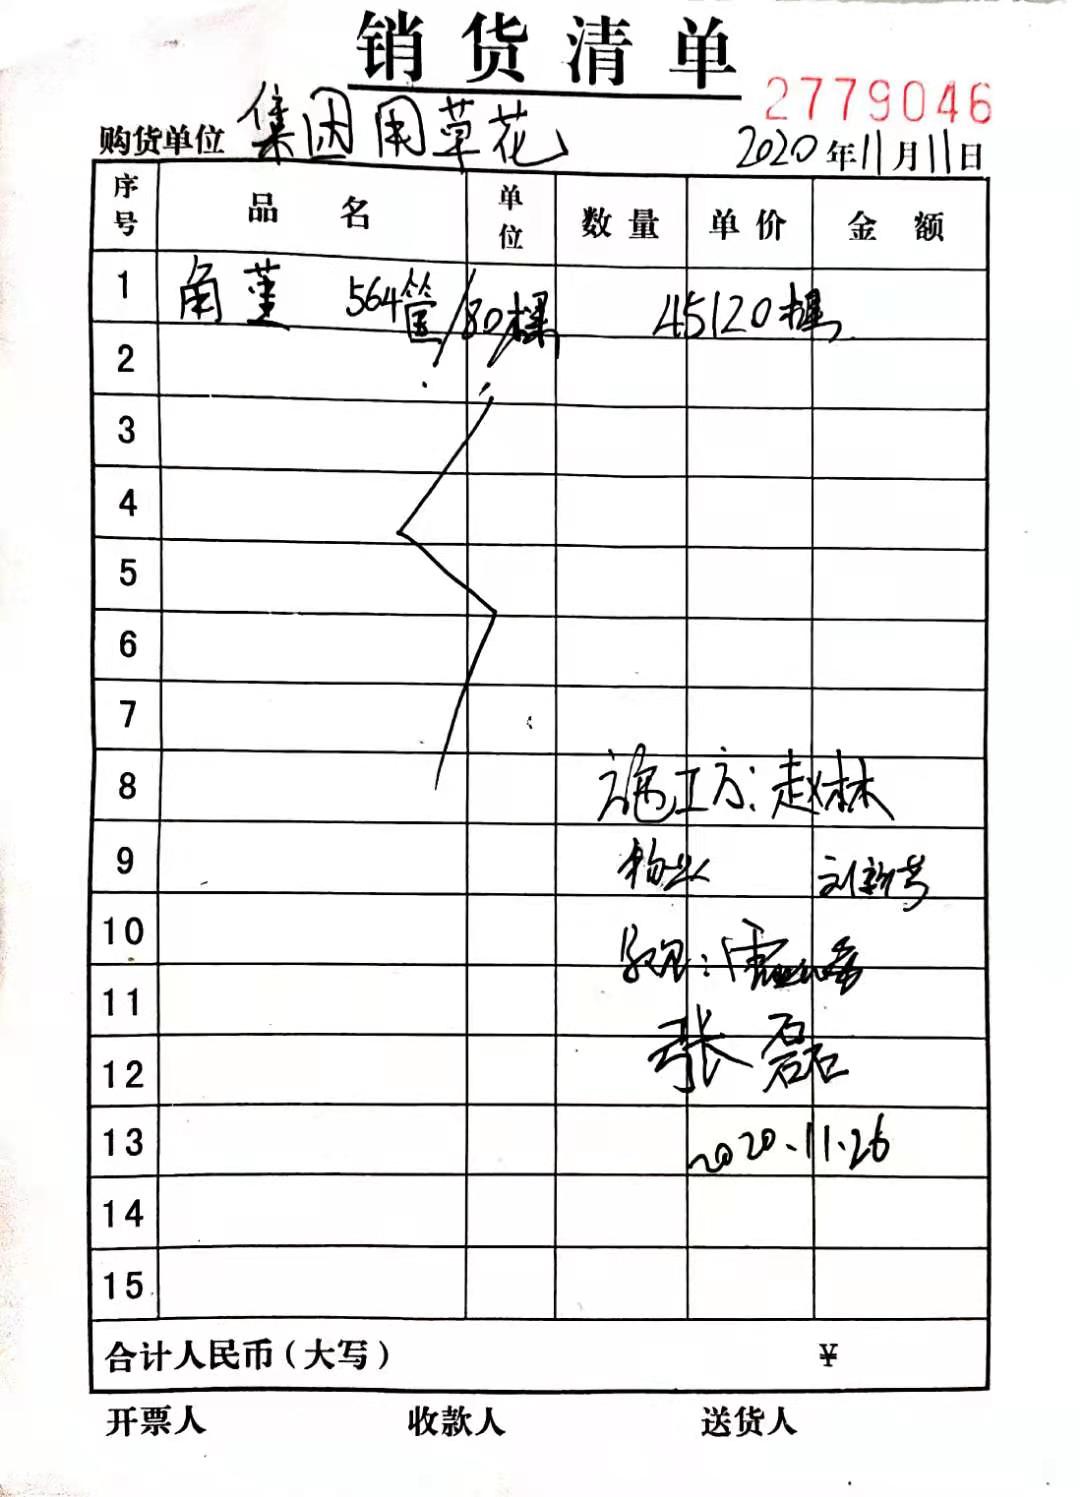 销货清单
2779046
购货单位 集团用草花 2020年11月11日
序号 品名 单位 数量 单价 金额
1 角堇 564筐/80棵 45120棵
2
3
4
5
6
7
8 施工方:赵林
9 物业 刘新芳
10
11 张磊
12
13 2020.11.26
14
15
合计人民币(大写) ¥
开票人 收款人 送货人